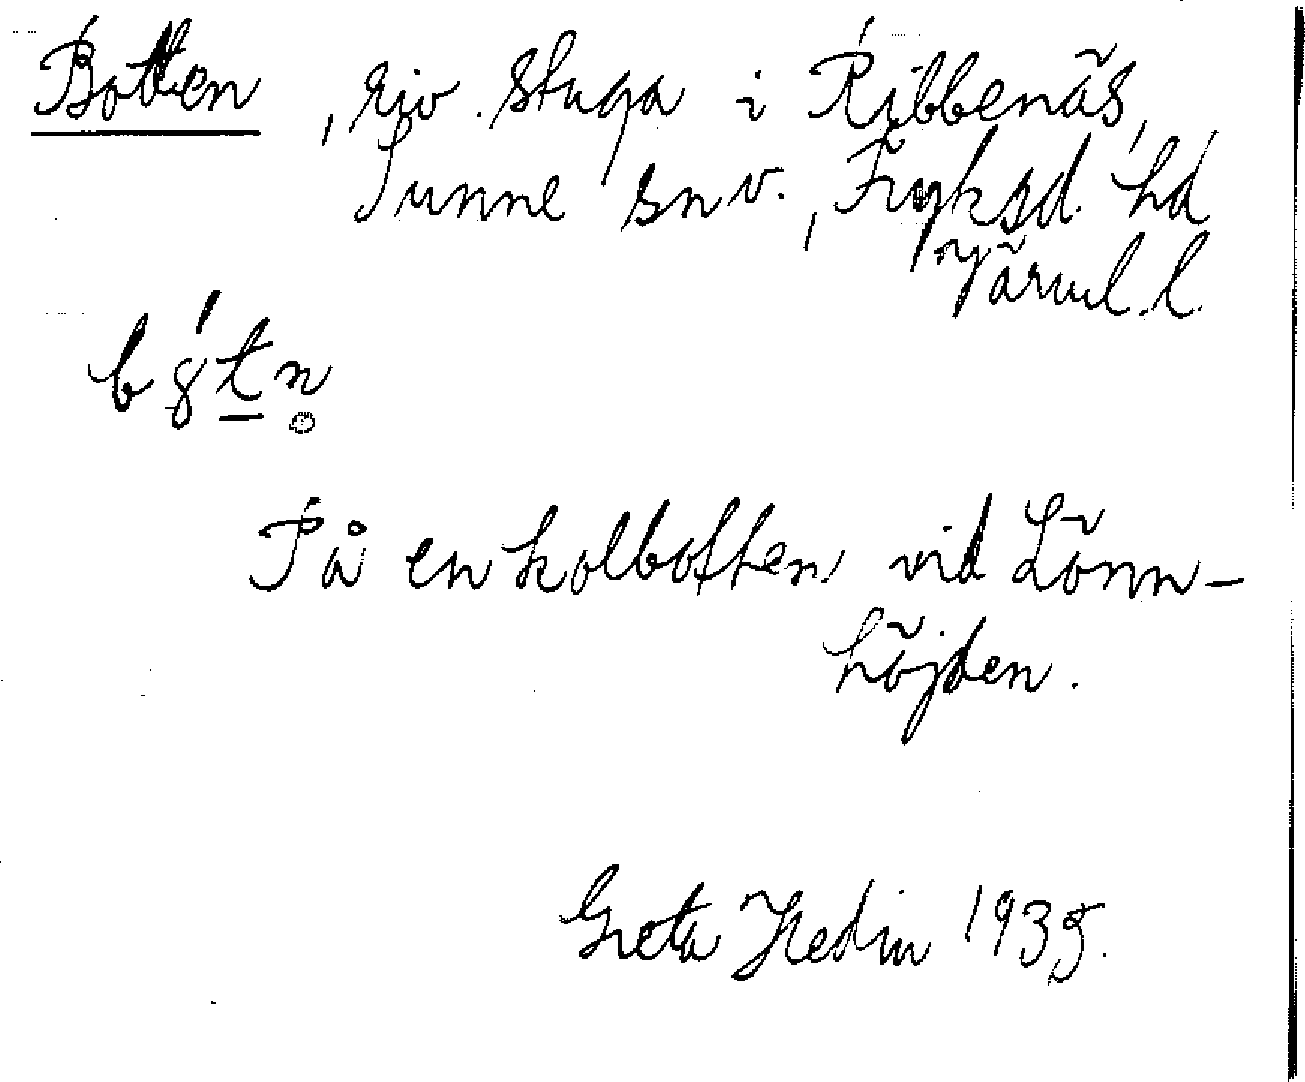 Botten, riv. stuga i Ribbenäs,
Sunne snv., Fryksd. hd
Värml. l.
På en kolbotten vid Lönn-
höjden.
Greta Hedin 1935.